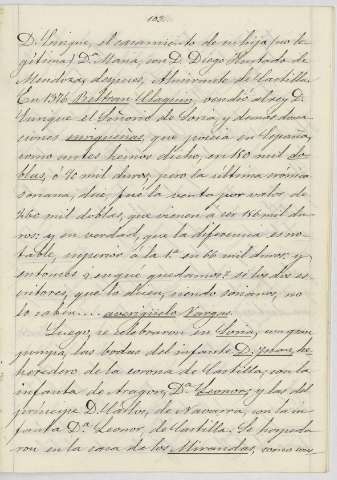 103.
D. Enrique, el casamiento de su hija (no le-
gítima) Dª. María, con D. Diego Hurtado de
Mendoza, despues, Almirante de Castilla.
En 1376 Beltran Claquin, vendió al rey D.
Enrique el Señorio de Soria y demás dona
ciones enriqueñas, que poseia en España,
como antes hemos dicho, en 180 mil do-
blas, ó 90 mil duros; pero la última crónica
soriana, dice, fué la venta por valor de
260 mil doblas, que vienen á ser 156 mil du-
ros: y en verdad, que la diferencia es no-
table, superior á la 1ª en 66 mil duros: y
entonces ¿en que quedamos? si los dos es-
critores, que lo dicen, siendo sorianos, no
lo saben.... averigüelo Vargas.
Luego, se celebraron en Soria, con gran
pompa, las bodas del infante D. Juan, he-
heredero de la corona de Castilla, con la
infanta de Aragon, Dª. Leonor; y las del
príncipe D. Cárlos, de Navarra, con la in-
fanta Dª. Leonor, de Castilla. Se hospeda
ron en la casa de los Mirandas, como